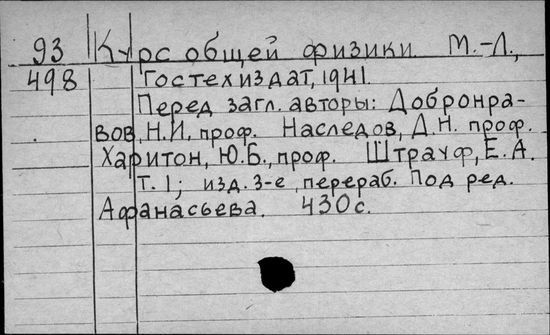 93 Курс общей физики М.-Л.,
498 Гостехиздат, 1941.
Перед загл. авторы: Добронра-
вов, Н.И. проф. Наследов, Д.Н. проф.
Харитон, Ю.Б., проф. Штрауф, Е.А.
Т. 1; изд. 3-е, перераб. Под ред.
Афанасьева. 430 с.